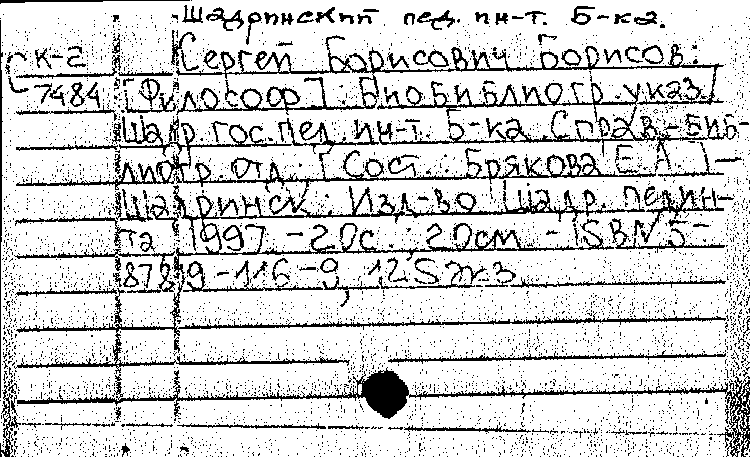 Шадринский пед. ин-т. Б-ка.
СК-2 Сергей Борисович Борисов:
7484 [Философ]: Биобиблиогр. указ./
Шадр. гос. пед. ин-т. Б-ка. Справ.-биб-
лиогр. отд.; [Сост. Брякова Е.А.]-
Шадринск: Изд-во Шадр. педин-
та, 1997. -20с.; 20см - ISBN 5-
87819-116-9, 125экз